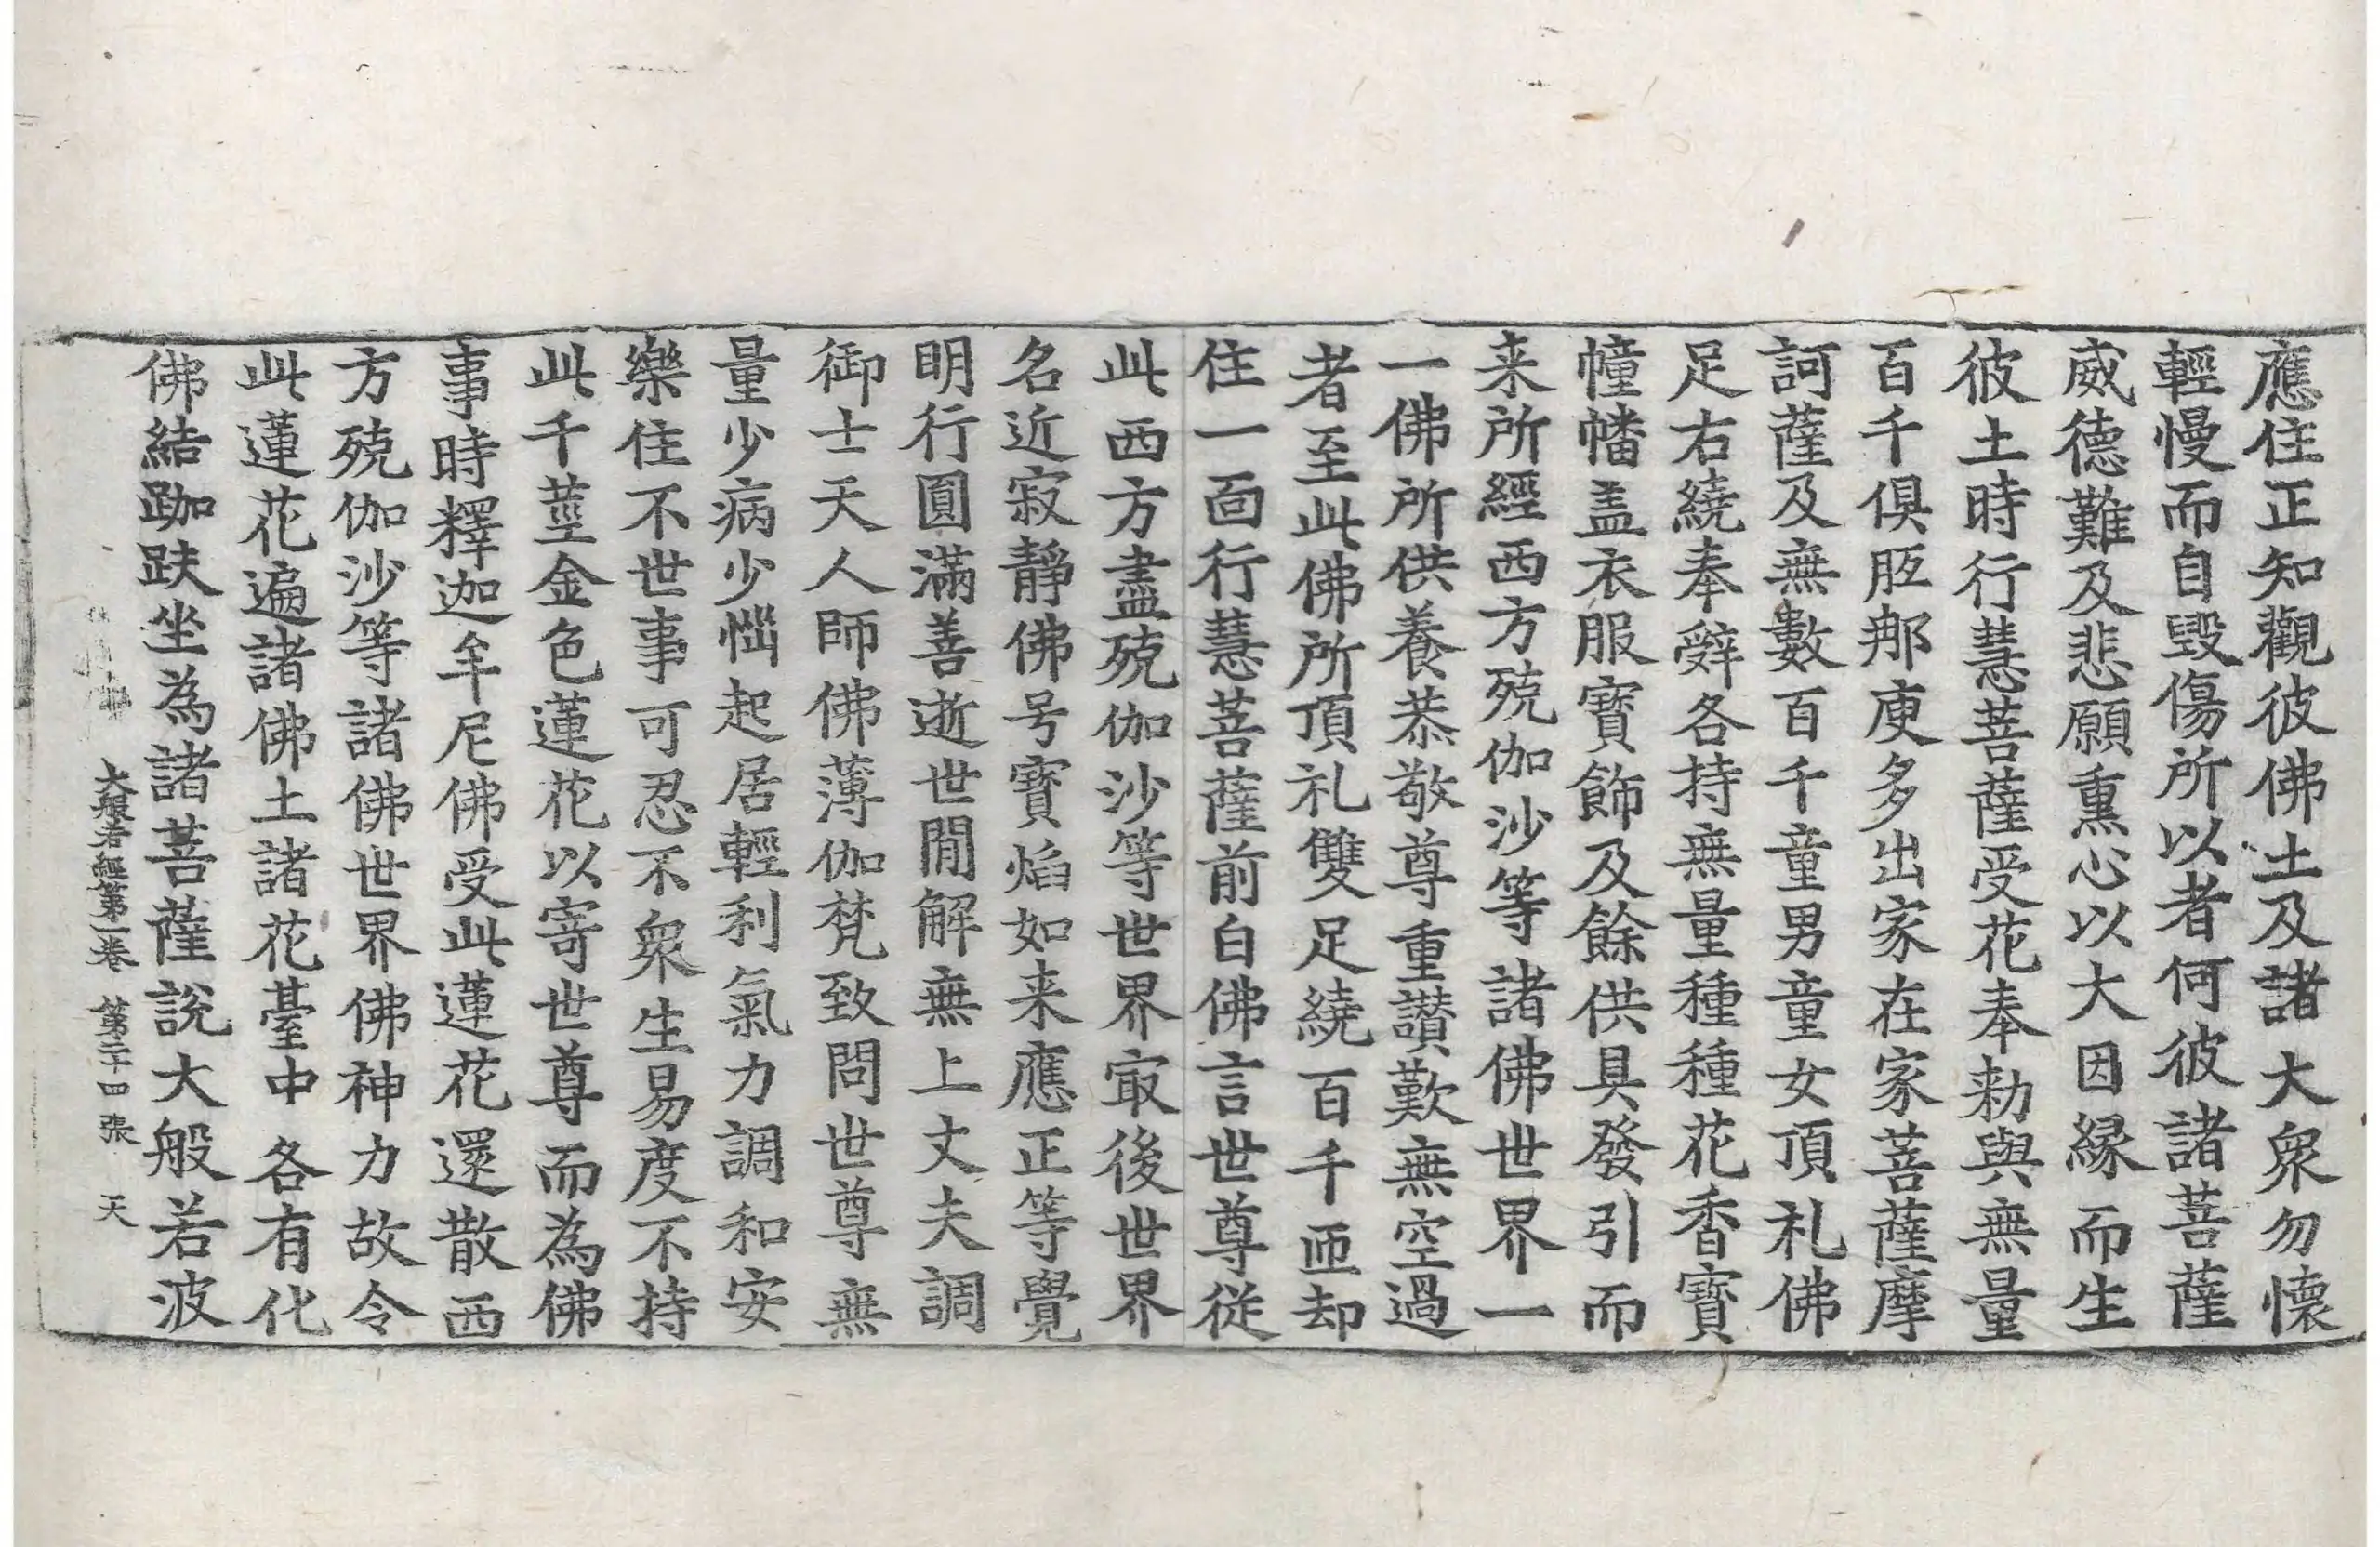 應住正知觀彼佛土及諸大衆勿懷
輕慢而自毀傷所以者何彼諸菩薩
威德難及悲願熏心以大因緣而生
彼土時行慧菩薩受花奉勑與無量
百千俱胝那庾多出家在家菩薩摩
訶薩及無數百千童男童女頂礼佛
足右繞奉辤各持無量種種花香寶
幢幡盖衣服寶飾及餘供具發引而
来所經西方殑伽沙等諸佛世界一
一佛所供養恭敬尊重讃歎無空過
者至此佛所頂礼雙足繞百千匝却
住一面行慧菩薩前白佛言世尊従
此西方盡殑伽沙等世界㝡後世界
名近寂靜佛号寶焰如来應正等覺
明行圓滿善逝世間解無上丈夫調
御士天人師佛薄伽梵致問世尊無
量少病少惱起居輕利氣力調和安
樂住不世事可忍不衆生易度不持
此千莖金色蓮花以寄世尊而為佛
事時釋迦牟尼佛受此蓮花還散西
方殑伽沙等諸佛世界佛神力故令
此蓮花遍諸佛土諸花臺中各有化
佛結跏趺坐為諸菩薩說大般若波
大般若經第一卷 第二十四張 天